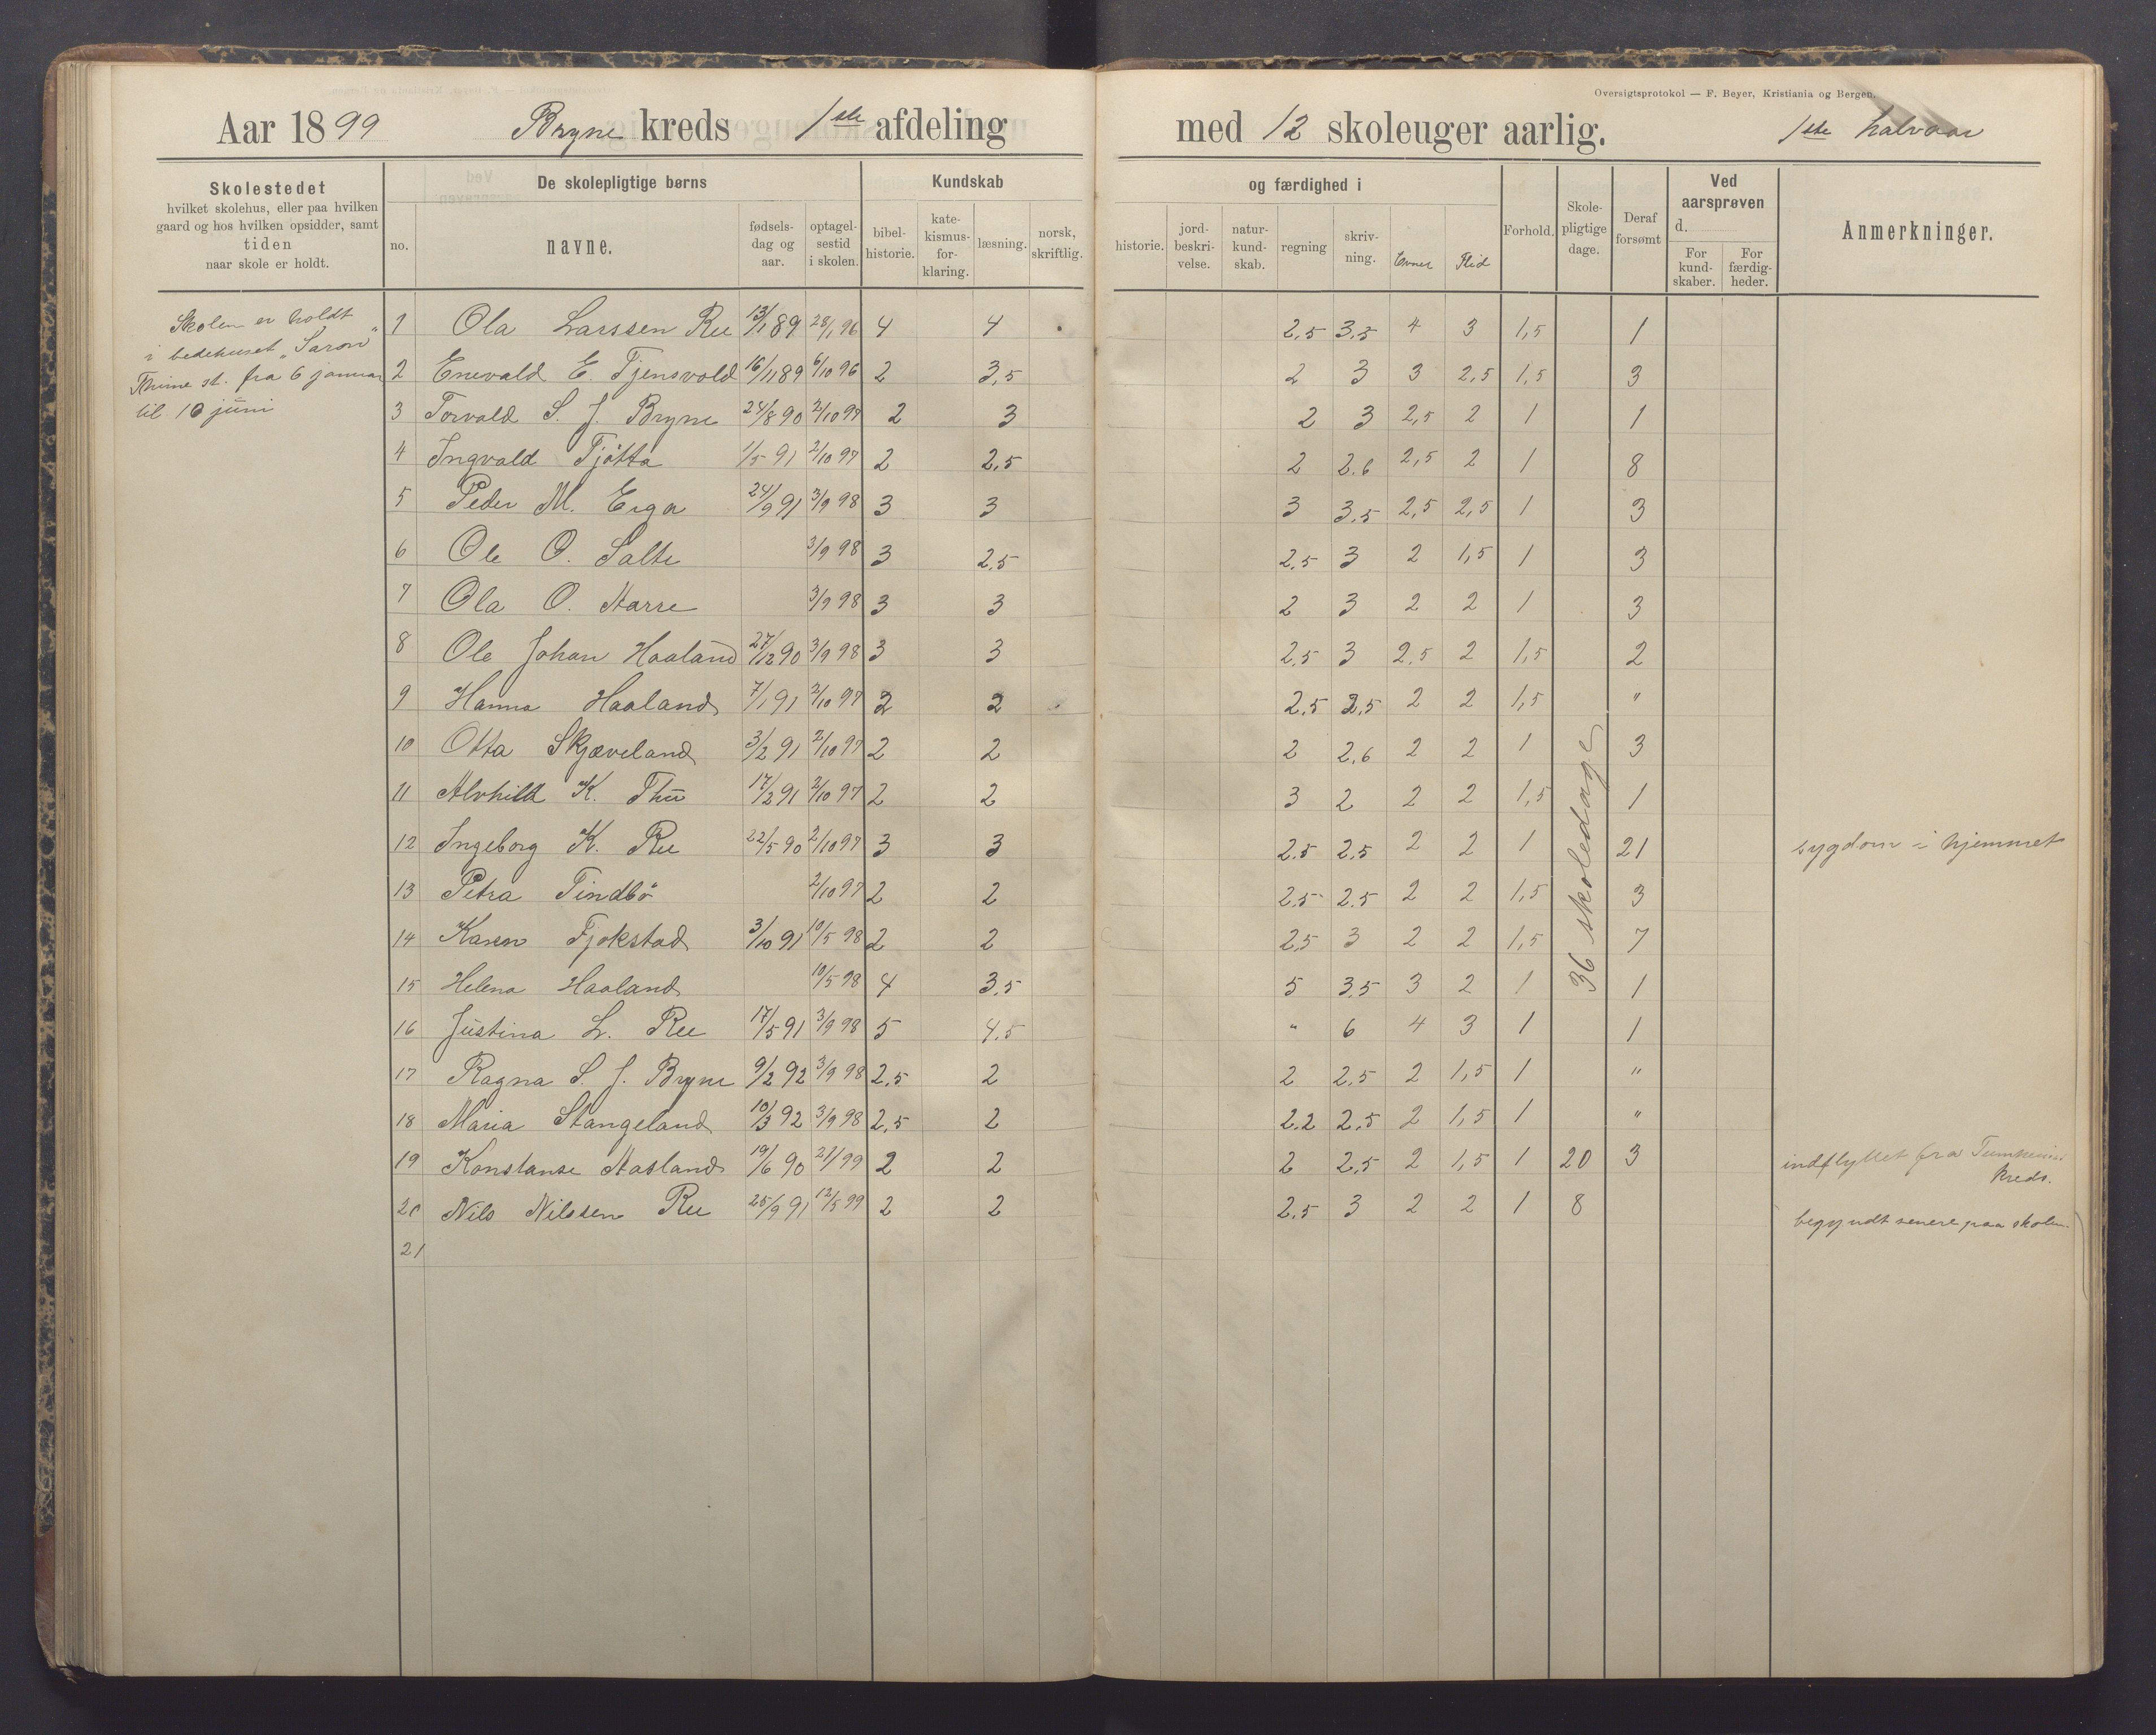 Oversigtsprotokol — F. Beyer, Kristiania og Bergen.
Aar 1899 Bryne kreds 1ste afdeling med 12 skoleuger aarlig. 1ste halvaar
Skolestedet
hvilket skolehus, eller paa hvilken
gaard og hos hvilken opsidder, samt
tiden
naar skole er holdt.
De skolepligtige børns
no.
navne.
fødsels-
dag og
aar.
optagel-
sestid
i skolen.
Kundskab
bibel-
historie.
kate-
kismus-
for-
klaring.
læsning.
norsk,
skriftlig.
og færdighed i
historie.
jord-
beskri-
velse.
natur-
kund-
skab.
regning
skriv-
ning.
Evner
Flid
Forhold.
Skole-
pligtige
dage.
Deraf
forsømt
Ved
aarsprøven
d.
For
kund-
skaber.
For
færdig-
heder.
Anmerkninger.
Skolen er holdt
i bedehuset „Saron"
Thime st. fra 6 januar
til 10 juni
1 Ola Larssen Ree 13/1 89 28/1 96 4 4 2,5 3,5 4 3 1,5 1
2 Enevald E. Tjensvold 16/11 89 6/10 96 2 3,5 2 3 3 2,5 1,5 3
3 Torvald S. J. Bryne 24/8 90 2/10 97 2 3 2 3 2,5 2 1 1
4 Ingvald Tjøtta 1/5 91 2/10 97 2 2,5 2 2,6 2,5 2 1 8
5 Peder M. Erga 24/9 91 3/9 98 3 3 3 3,5 2,5 2,5 1 3
6 Ole O. Salte 3/9 98 3 2,5 2,5 3 2 1,5 1 3
7 Ola O. Harre 3/9 98 3 3 2 3 2 2 1 3
8 Ole Johan Haaland 27/12 90 3/9 98 3 3 2,5 3 2,5 2 1,5 2
9 Hanna Haaland 7/1 91 2/10 97 2 2 2,5 2,5 2 2 1,5 "
10 Otta Skjæveland 3/2 91 2/10 97 2 2 2 2,6 2 2 1 3
11 Alvhild K. Thu 17/2 91 2/10 97 2 2 3 2 2 2 1,5 1
12 Ingeborg K. Ree 22/5 90 2/10 97 3 3 2,5 2,5 2 2 1 21 sygdom i hjemmet
13 Petra Tindbö 2/10 97 2 2 2,5 2,5 2 2 1,5 3
14 Karen Fjokstad 3/10 91 10/5 98 2 2 2,5 3 2 2 1,5 7
15 Helena Haaland 10/5 98 4 3,5 5 3,5 3 2 1 1
16 Justina L. Ree 17/5 91 3/9 98 5 4,5 " 6 4 3 1 1
17 Ragna S. J. Bryne 9/2 92 3/9 98 2,5 2 2 2,5 2 1,5 1 "
18 Maria Stangeland 10/3 92 3/9 98 2,5 2 2,2 2,5 2 1,5 1 "
36 skoledage
19 Konstanse Aasland 19/6 90 21/1 99 2 2 2 2,5 2 1,5 1 20 3 indflyttet fra
kreds.
20 Nils Nilssen Ree 25/9 91 12/5 99 2 2 2,5 3 2 2 1 8 begyndt senere paa skolen.
21